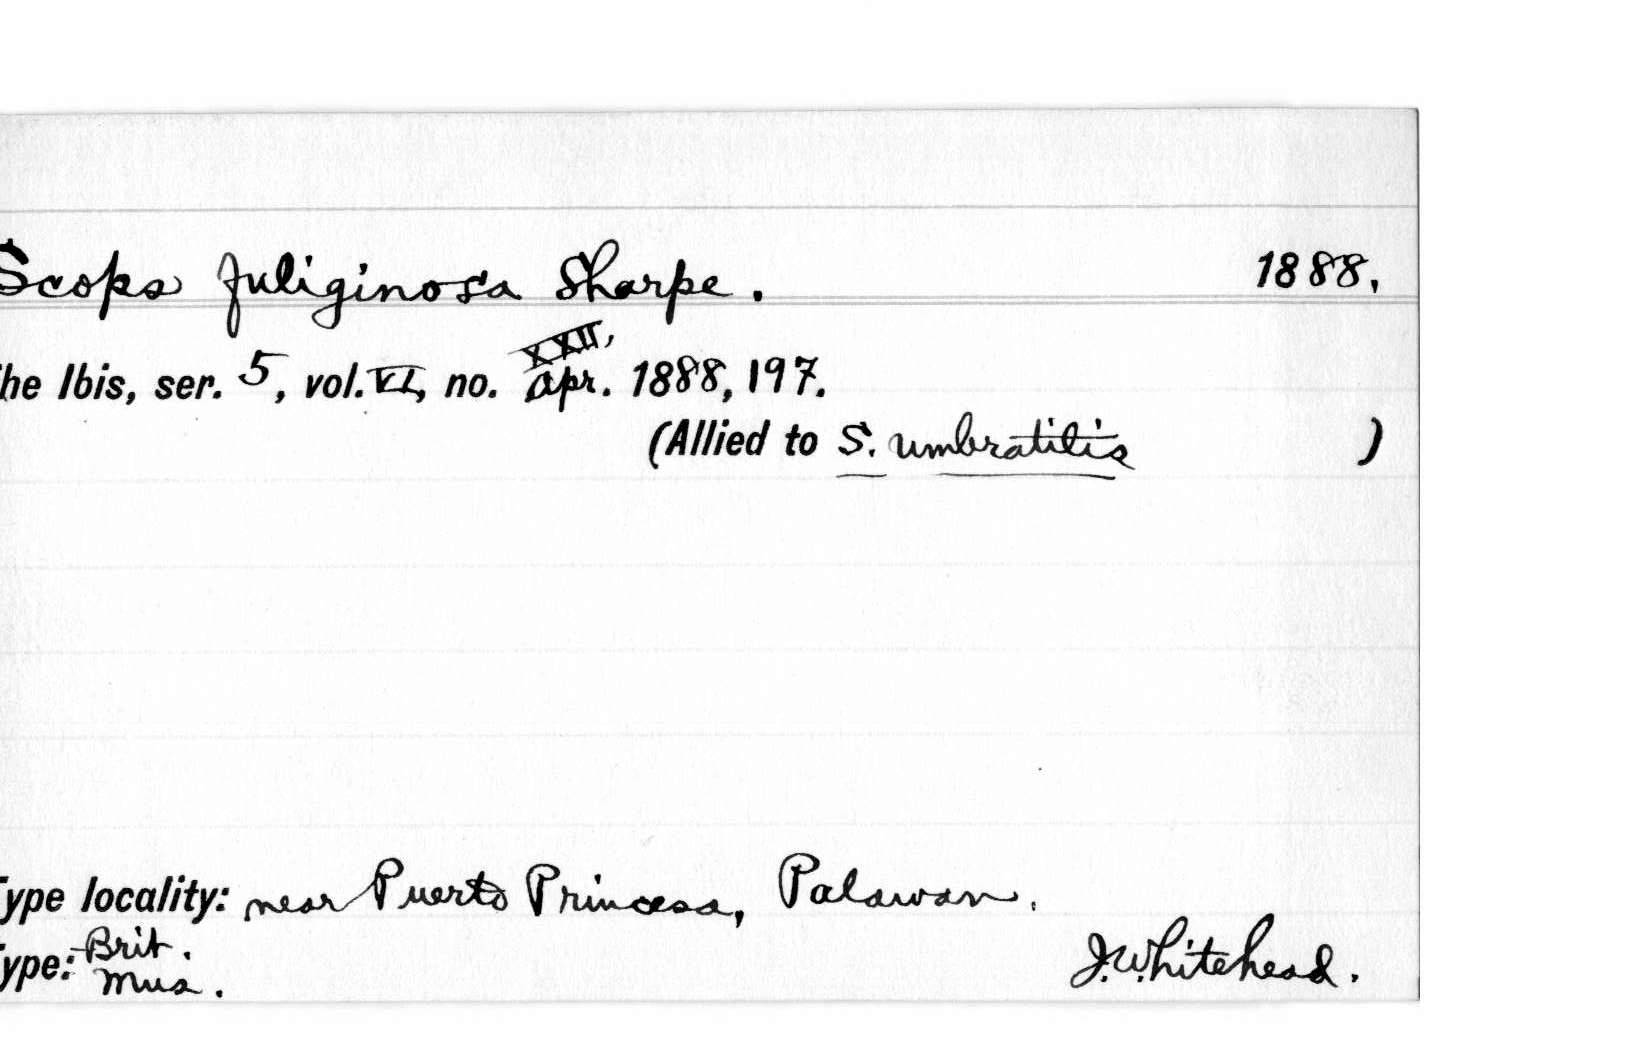 Scops fuliginosa Sharpe. 1888.
XXII,
he Ibis, ser. 5, vol. VI, no. Apr. 1888, 197.
(Allied to S. umbratilis )
Type locality: near Puerto Princesa, Palawan.
Brit.
Type: Mus. J. Whitehead.